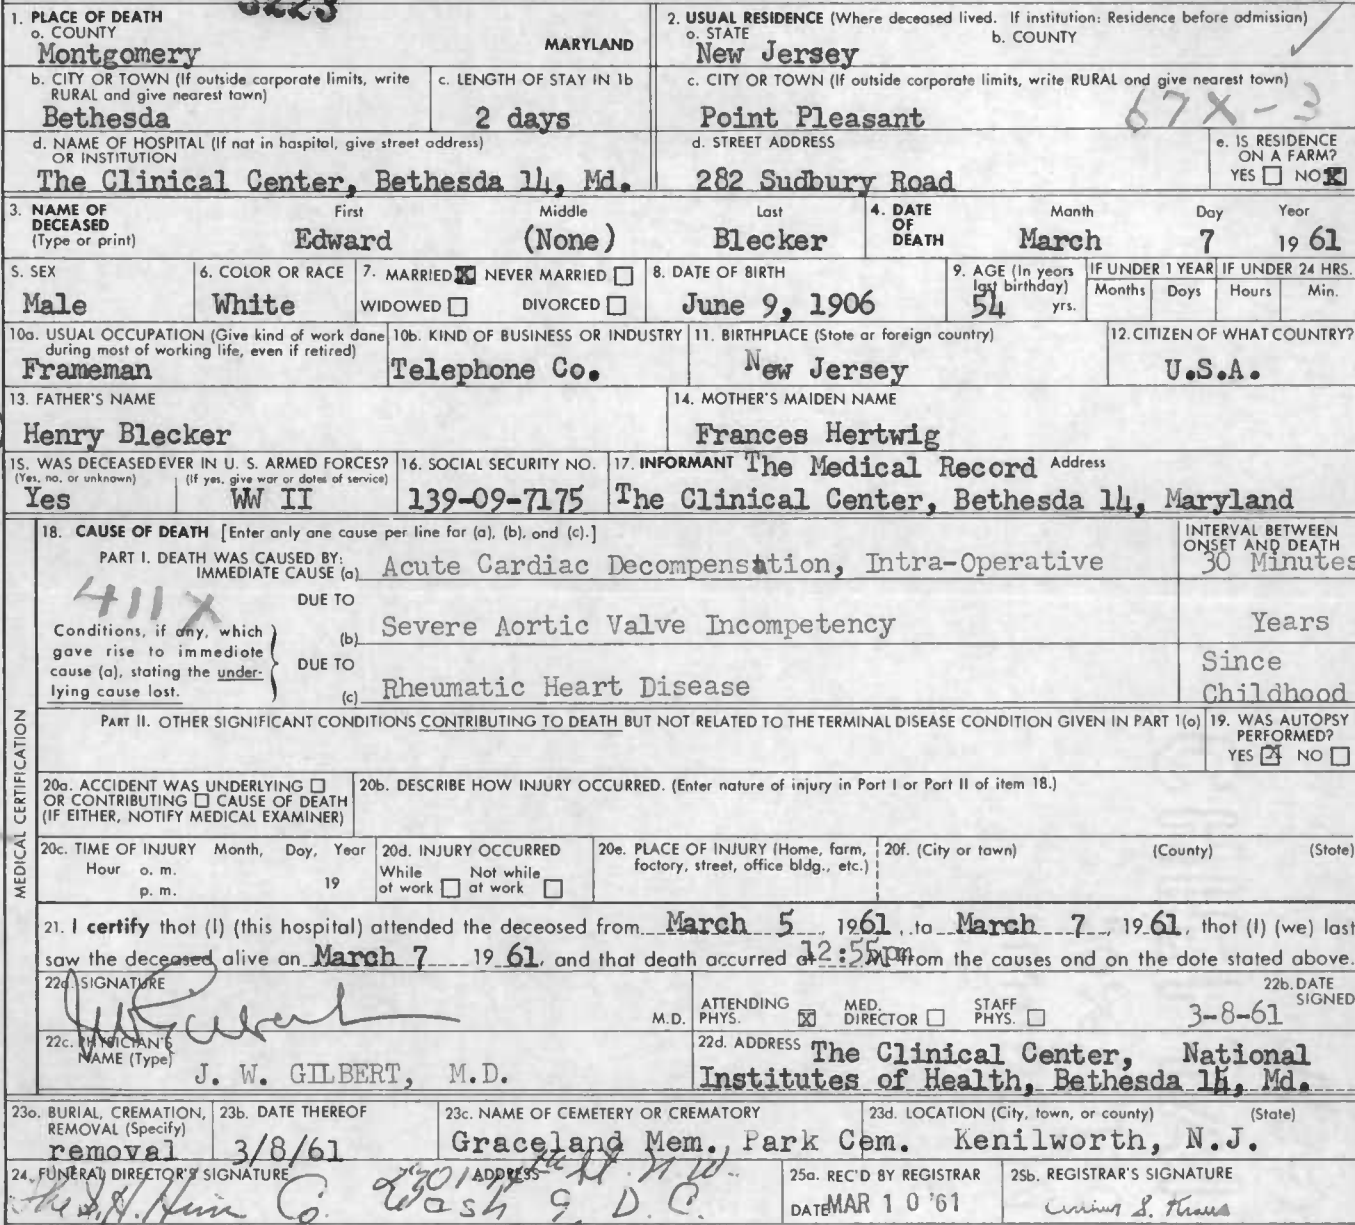 3223
1. PLACE OF DEATH
a. COUNTY
Montgomery MARYLAND
2. USUAL RESIDENCE (Where deceased lived. If institution: Residence before admission)
a. STATE b. COUNTY
New Jersey
b. CITY OR TOWN (If outside corporate limits, write RURAL and give nearest town)
Bethesda
c. LENGTH OF STAY IN 1b
2 days
c. CITY OR TOWN (If outside corporate limits, write RURAL and give nearest town)
Point Pleasant
67X-3
d. NAME OF HOSPITAL (If not in hospital, give street address)
OR INSTITUTION
The Clinical Center, Bethesda 14, Md.
d. STREET ADDRESS
282 Sudbury Road
e. IS RESIDENCE ON A FARM?
YES NO X
3. NAME OF DECEASED (Type or print)
First Middle Last
Edward (None) Blecker
4. DATE OF DEATH
Month Day Year
March 7 1961
5. SEX
Male
6. COLOR OR RACE
White
7. MARRIED X NEVER MARRIED
WIDOWED DIVORCED
8. DATE OF BIRTH
June 9, 1906
9. AGE (In years last birthday)
54 yrs.
IF UNDER 1 YEAR
Months Days
IF UNDER 24 HRS.
Hours Min.
10a. USUAL OCCUPATION (Give kind of work done during most of working life, even if retired)
Frameman
10b. KIND OF BUSINESS OR INDUSTRY
Telephone Co.
11. BIRTHPLACE (State or foreign country)
New Jersey
12. CITIZEN OF WHAT COUNTRY?
U.S.A.
13. FATHER'S NAME
Henry Blecker
14. MOTHER'S MAIDEN NAME
Frances Hertwig
15. WAS DECEASED EVER IN U. S. ARMED FORCES?
(Yes, no, or unknown) (If yes, give war or dates of service)
Yes WW II
16. SOCIAL SECURITY NO.
139-09-7175
17. INFORMANT The Medical Record Address
The Clinical Center, Bethesda 14, Maryland
MEDICAL CERTIFICATION
18. CAUSE OF DEATH [Enter only one cause per line for (a), (b), and (c).]
INTERVAL BETWEEN ONSET AND DEATH
PART I. DEATH WAS CAUSED BY:
IMMEDIATE CAUSE (a) Acute Cardiac Decompensation, Intra-Operative 30 Minutes
411X
Conditions, if any, which gave rise to immediate cause (a), stating the underlying cause last.
DUE TO
(b) Severe Aortic Valve Incompetency Years
DUE TO
(c) Rheumatic Heart Disease Since Childhood
PART II. OTHER SIGNIFICANT CONDITIONS CONTRIBUTING TO DEATH BUT NOT RELATED TO THE TERMINAL DISEASE CONDITION GIVEN IN PART 1(a)
19. WAS AUTOPSY PERFORMED?
YES X NO
20a. ACCIDENT WAS UNDERLYING
OR CONTRIBUTING CAUSE OF DEATH
(IF EITHER, NOTIFY MEDICAL EXAMINER)
20b. DESCRIBE HOW INJURY OCCURRED. (Enter nature of injury in Part I or Part II of item 18.)
20c. TIME OF INJURY Month, Day, Year
Hour a. m.
p. m. 19
20d. INJURY OCCURRED
While at work Not while at work
20e. PLACE OF INJURY (Home, farm, factory, street, office bldg., etc.)
20f. (City or town) (County) (State)
21. I certify that (I) (this hospital) attended the deceased from March 5, 1961, to March 7, 1961, that (I) (we) last
saw the deceased alive on March 7 1961, and that death occurred at 12:55 pm from the causes and on the date stated above.
22a. SIGNATURE
JW Gilbert M.D.
ATTENDING PHYS. X MED. DIRECTOR STAFF PHYS.
22b. DATE SIGNED
3-8-61
22c. PHYSICIAN'S NAME (Type)
J. W. GILBERT, M.D.
22d. ADDRESS The Clinical Center, National
Institutes of Health, Bethesda 14, Md.
23a. BURIAL, CREMATION, REMOVAL (Specify)
removal
23b. DATE THEREOF
3/8/61
23c. NAME OF CEMETERY OR CREMATORY
Graceland Mem., Park Cem.
23d. LOCATION (City, town, or county) (State)
Kenilworth, N.J.
24. FUNERAL DIRECTOR'S SIGNATURE ADDRESS
The S.H. Hines Co. 2901 14th St. N.W.
Wash 9, D.C.
25a. REC'D BY REGISTRAR
DATE MAR 10 '61
25b. REGISTRAR'S SIGNATURE
S. Kraus